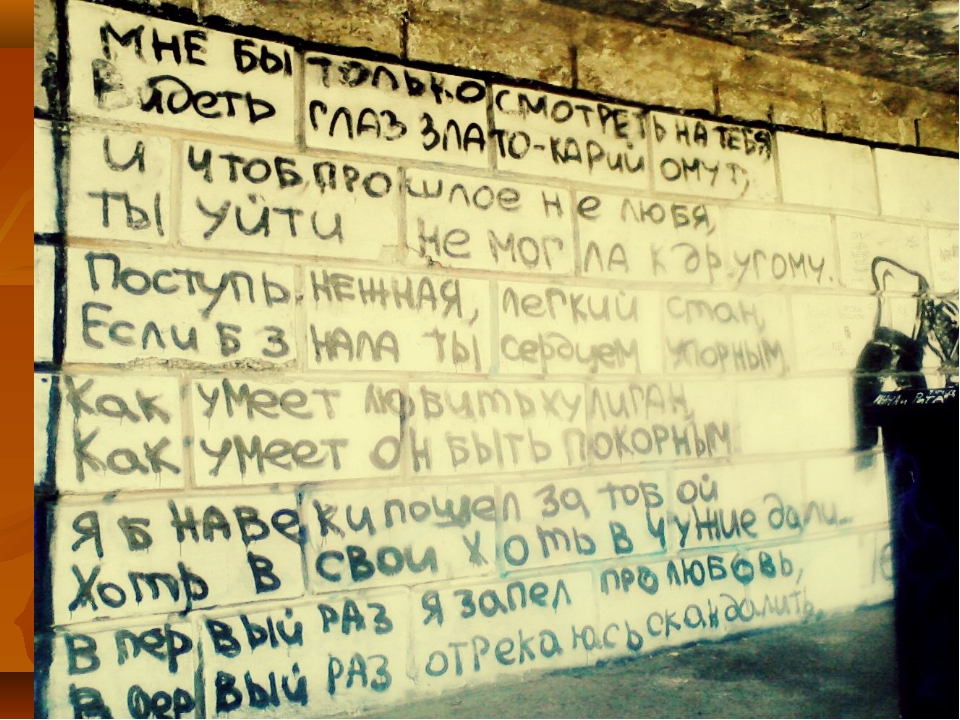 МНЕ БЫ ТОЛЬКО СМОТРЕТЬ НА ТЕБЯ,
Видеть ГЛАЗ ЗЛАТО-КАРИЙ ОМУТ,
И ЧТОБ, ПРОШЛОЕ НЕ ЛЮБЯ,
ТЫ УЙТИ НЕ МОГЛА К ДРУГОМУ.
Поступь НЕЖНАЯ, легкий стан,
Если б знала ты сердцем упорным,
Как умеет любить хулиган,
Как умеет он быть покорным
Я б навеки пошел за тобой
Хоть в свои хоть в чужие дали...
В первый раз я запел про любовь,
В первый раз отрекаюсь скандалить.